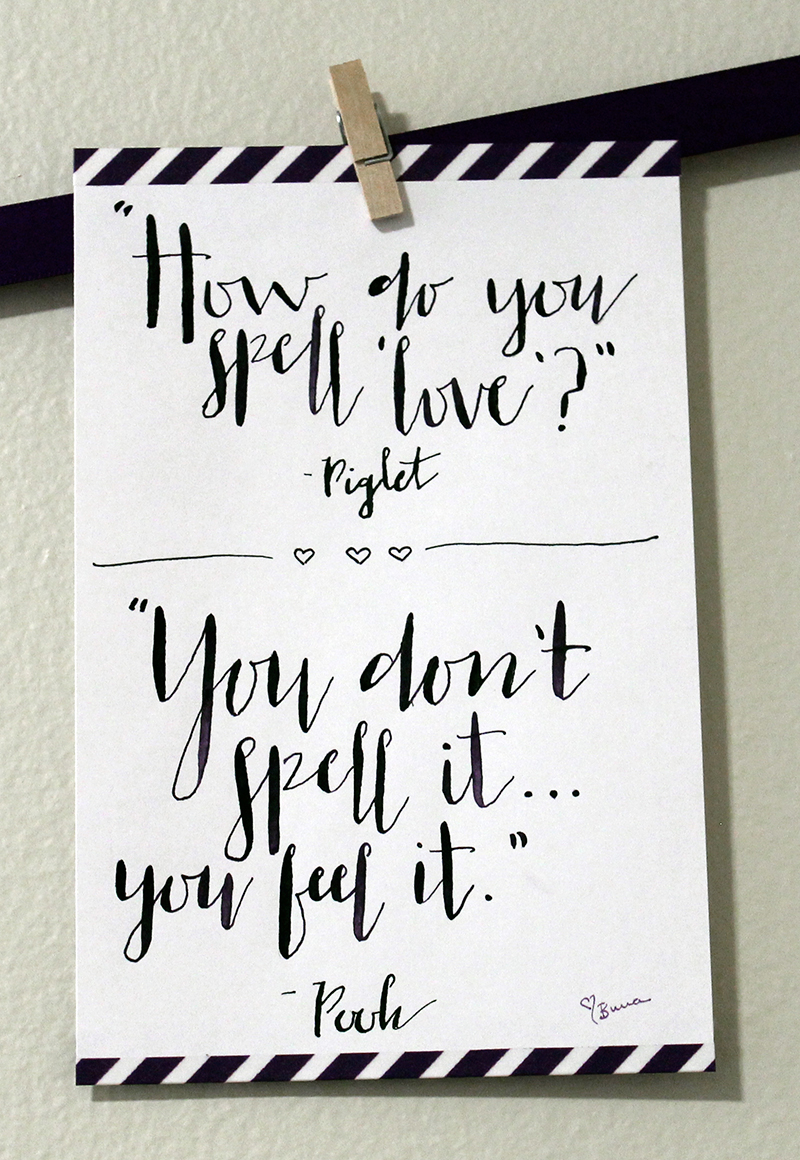 "How do you
spell 'love'?"
-Piglet
"You don't
spell it...
you feel it."
-Pooh